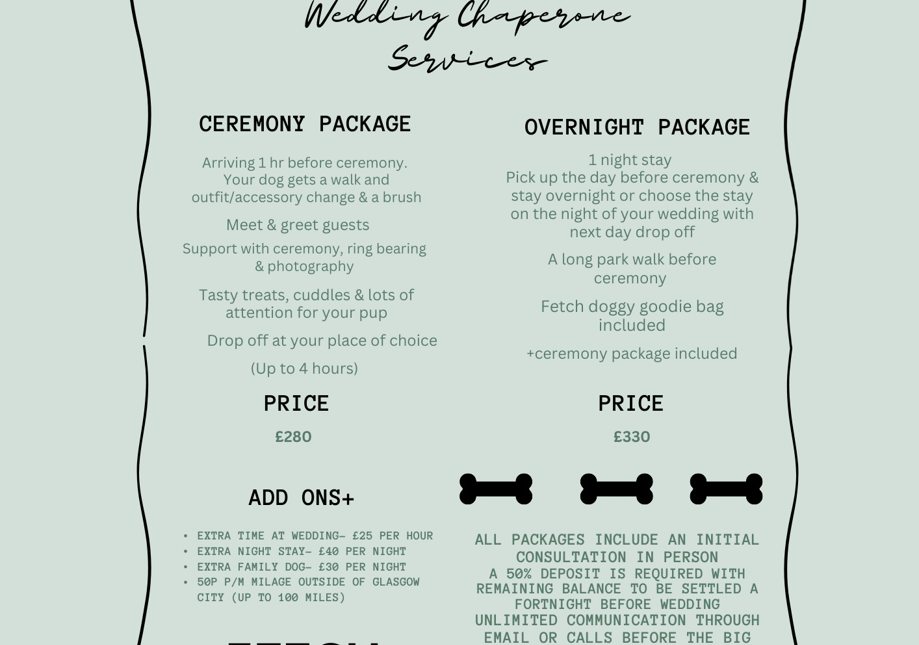 Wedding Chaperone
Services
CEREMONY PACKAGE
Arriving 1 hr before ceremony.
Your dog gets a walk and
outfit/accessory change & a brush
Meet & greet guests
Support with ceremony, ring bearing
& photography
Tasty treats, cuddles & lots of
attention for your pup
Drop off at your place of choice
(Up to 4 hours)
PRICE
£280
OVERNIGHT PACKAGE
1 night stay
Pick up the day before ceremony &
stay overnight or choose the stay
on the night of your wedding with
next day drop off
A long park walk before
ceremony
Fetch doggy goodie bag
included
+ceremony package included
PRICE
£330
ADD ONS+
• EXTRA TIME AT WEDDING– £25 PER HOUR
• EXTRA NIGHT STAY– £40 PER NIGHT
• EXTRA FAMILY DOG– £30 PER NIGHT
• 50P P/M MILAGE OUTSIDE OF GLASGOW
CITY (UP TO 100 MILES)
ALL PACKAGES INCLUDE AN INITIAL
CONSULTATION IN PERSON
A 50% DEPOSIT IS REQUIRED WITH
REMAINING BALANCE TO BE SETTLED A
FORTNIGHT BEFORE WEDDING
UNLIMITED COMMUNICATION THROUGH
EMAIL OR CALLS BEFORE THE BIG